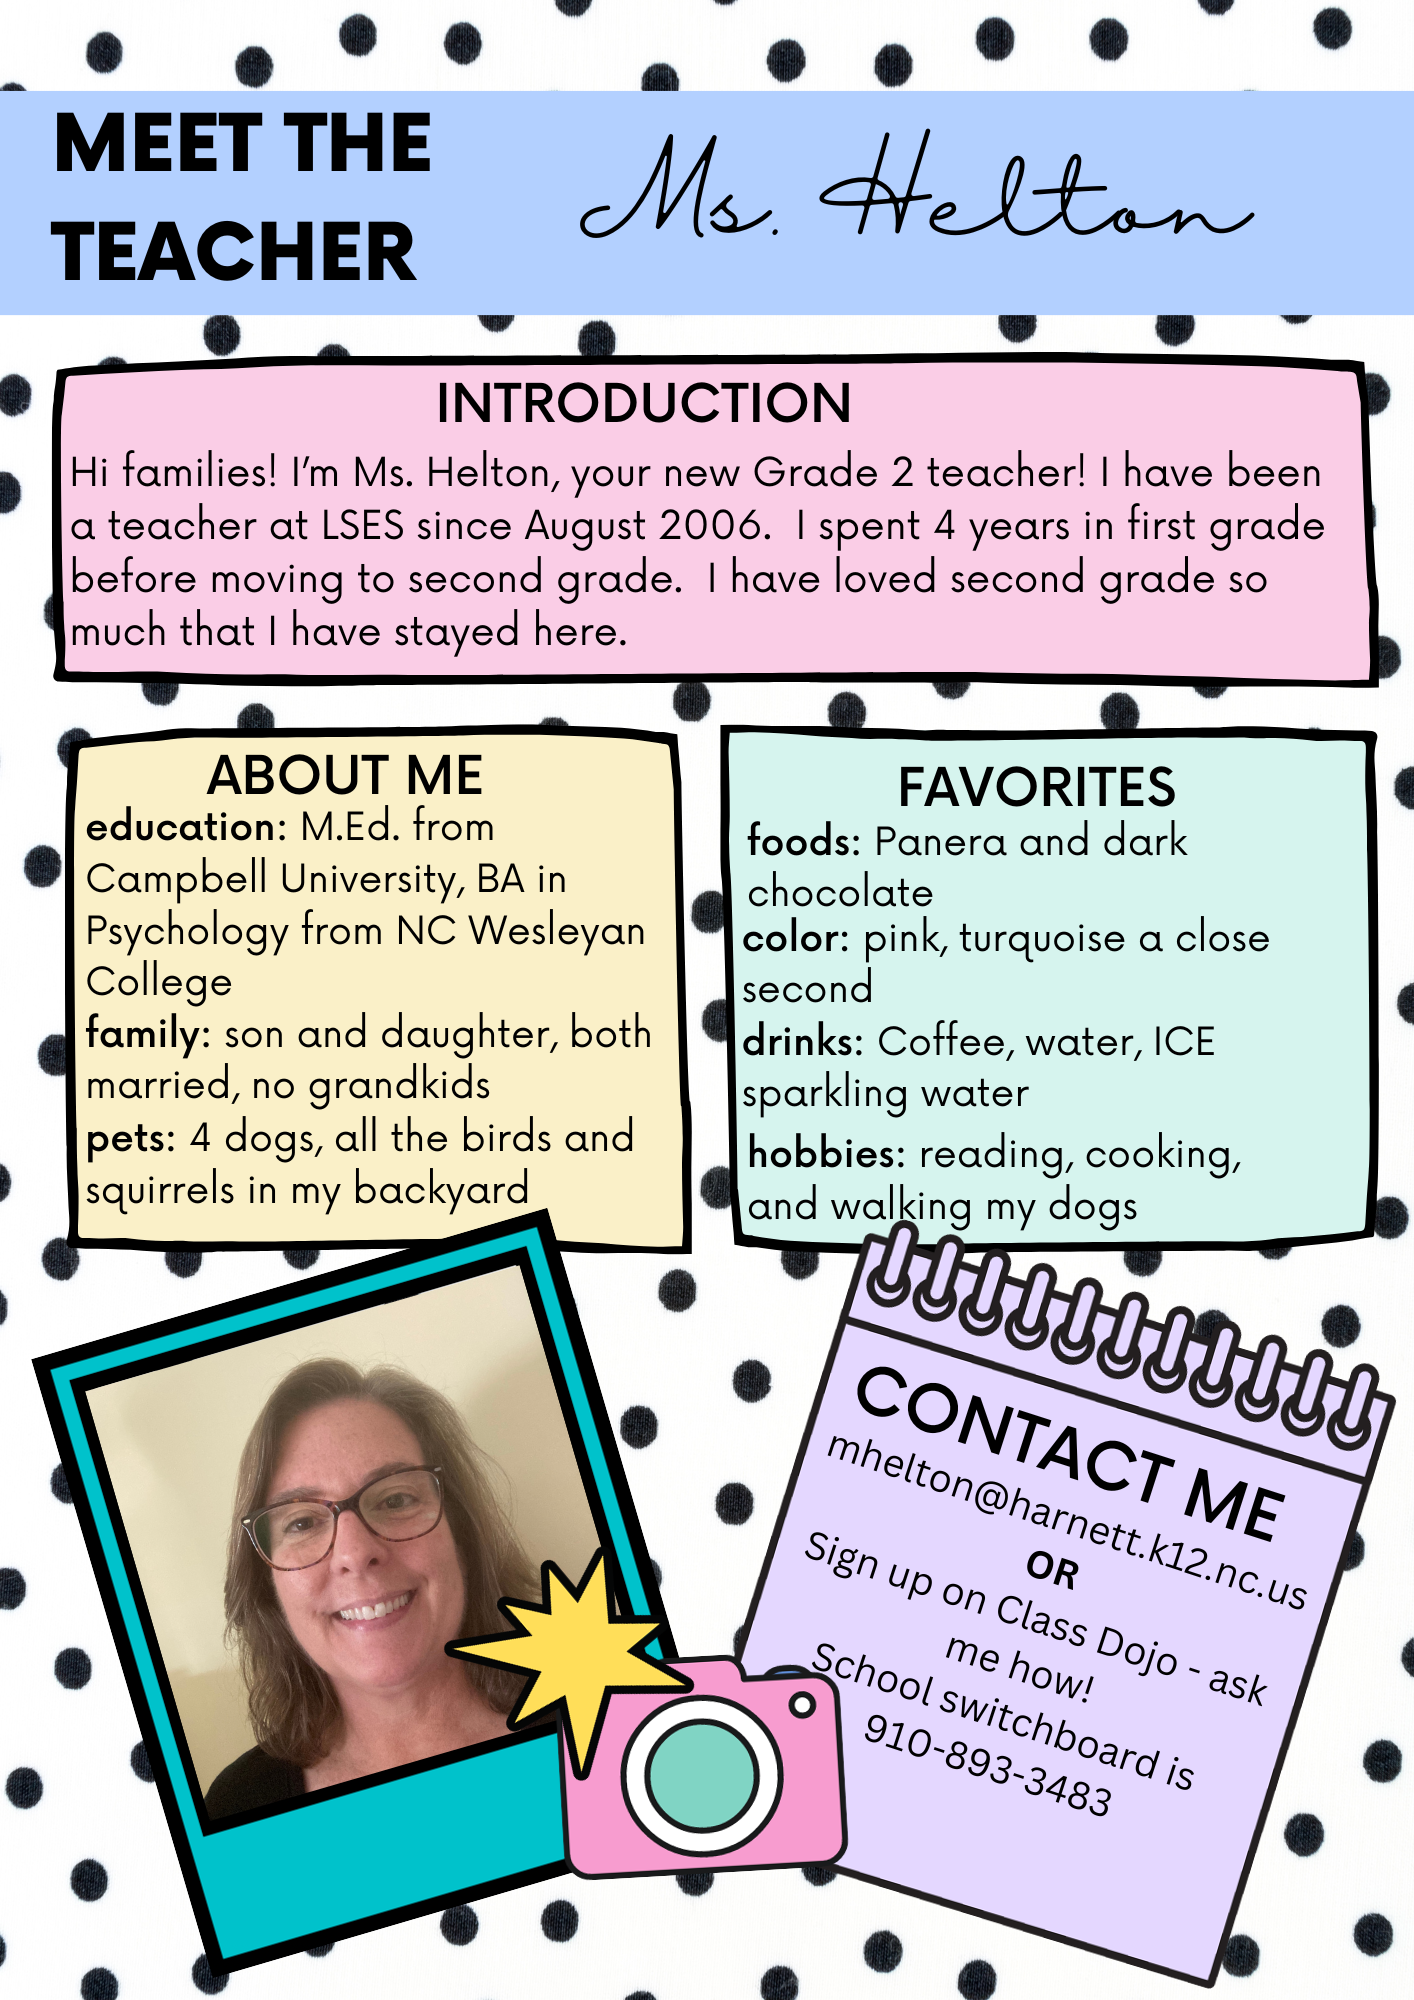 MEET THE
TEACHER
Ms. Helton
INTRODUCTION
Hi families! I’m Ms. Helton, your new Grade 2 teacher! I have been
a teacher at LSES since August 2006.  I spent 4 years in first grade
before moving to second grade.  I have loved second grade so
much that I have stayed here.
ABOUT ME
education: M.Ed. from
Campbell University, BA in
Psychology from NC Wesleyan
College
family: son and daughter, both
married, no grandkids
pets: 4 dogs, all the birds and
squirrels in my backyard
FAVORITES
foods: Panera and dark
chocolate
color: pink, turquoise a close
second
drinks: Coffee, water, ICE
sparkling water
hobbies: reading, cooking,
and walking my dogs
CONTACT ME
mhelton@harnett.k12.nc.us
OR
Sign up on Class Dojo - ask
me how!
School switchboard is
910-893-3483